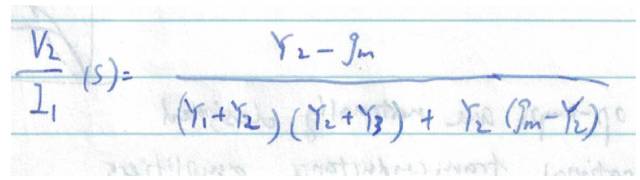 V2/I1 (s) = (Y2 - gm) / ((Y1 + Y2)(Y2 + Y3) + Y2 (gm - Y2))